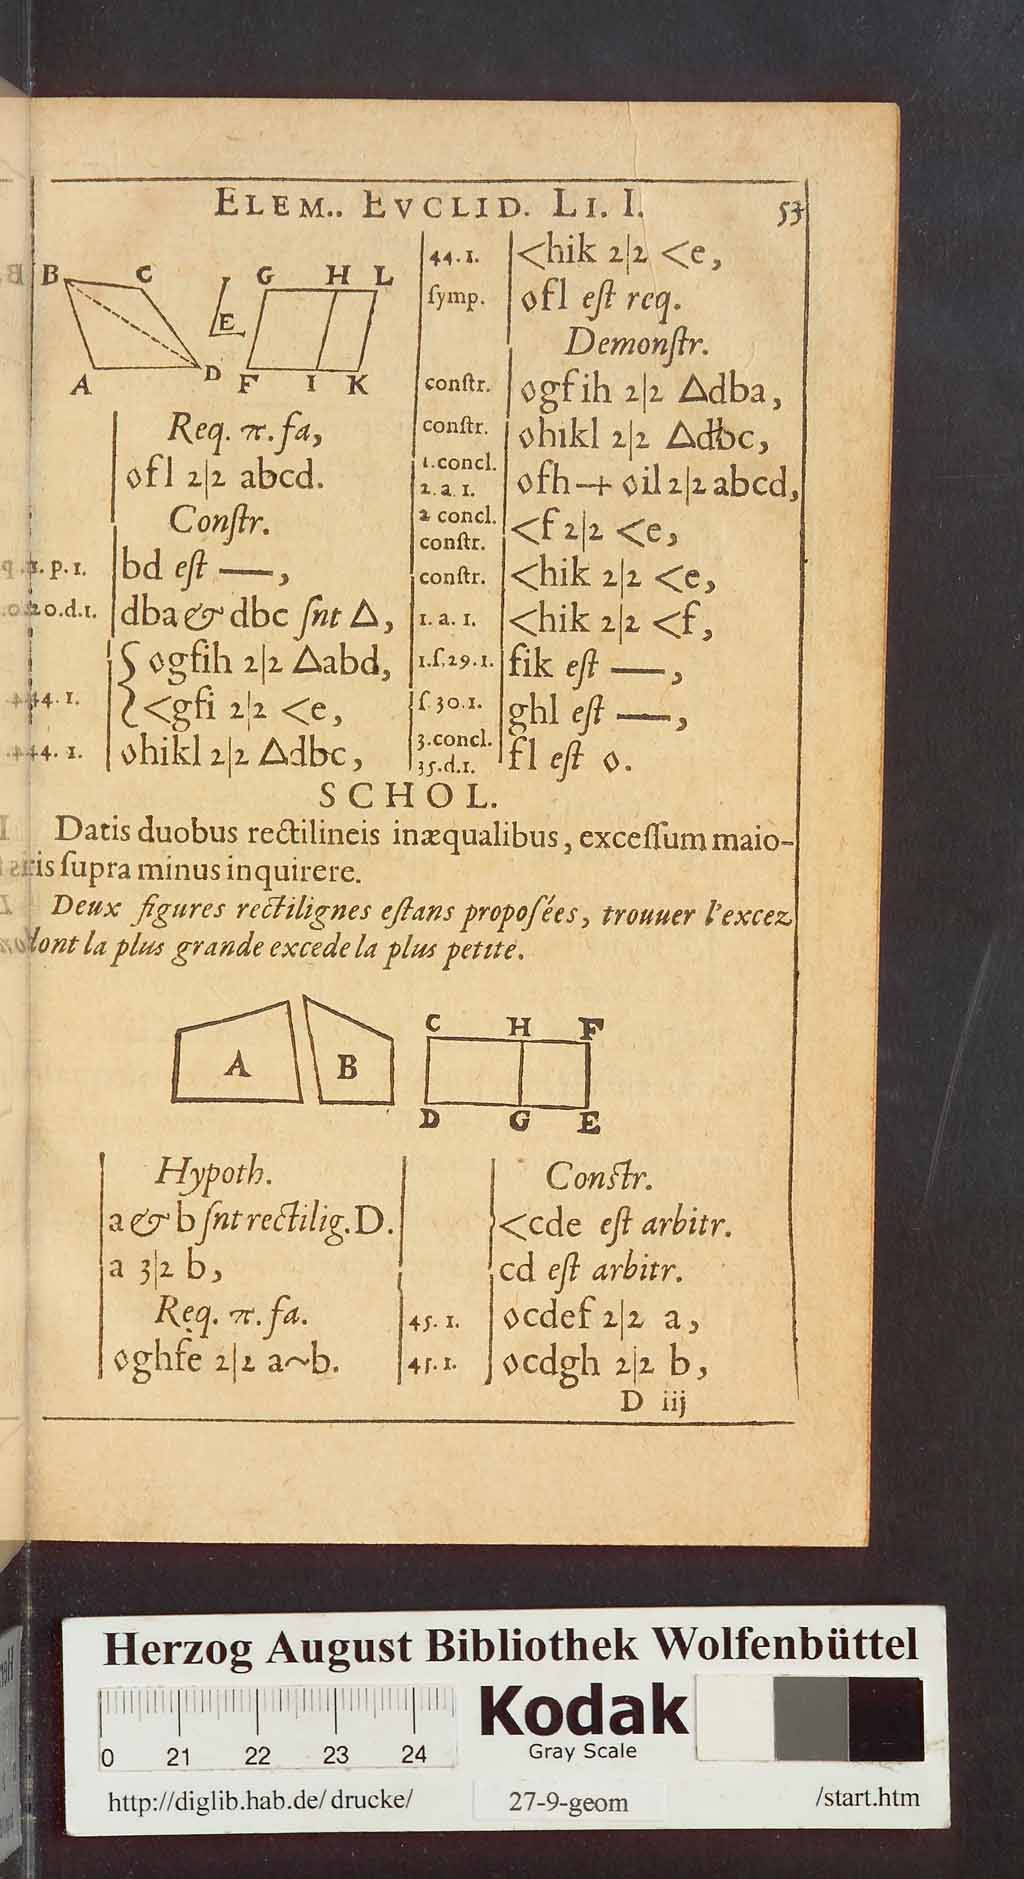 ELEM.. EVCLID. LI. I. 53
B C G H L
E
A D F I K
Req. π. fa,
▱fl 2|2 abcd.
Conſtr.
1. p. 1. bd eſt —,
20.d.1. dba & dbc ſnt Δ,
{ ▱gfih 2|2 Δabd,
44. 1. <gfi 2|2 <e,
44. 1. ▱hikl 2|2 Δdbc,
44. 1. <hik 2|2 <e,
ſymp. ▱fl eſt req.
Demonſtr.
conſtr. ▱gfih 2|2 Δdba,
conſtr. ▱hikl 2|2 Δdbc,
1.concl.
2. a. 1. ▱fh + ▱il 2|2 abcd,
2 concl.
conſtr. <f 2|2 <e,
conſtr. <hik 2|2 <e,
1. a. 1. <hik 2|2 <f,
1.ſ.29.1. fik eſt —,
ſ.30.1. ghl eſt —,
3.concl.
35.d.1. fl eſt ▱.
SCHOL.
Datis duobus rectilineis inæqualibus, exceſſum maio-
ris ſupra minus inquirere.
Deux figures rectilignes eſtans propoſées, trouuer l'excez
dont la plus grande excede la plus petite.
A B C H F
D G E
Hypoth.
a & b ſnt rectilig. D.
a 3|2 b,
Req. π. fa.
▱ghfe 2|2 a~b.
Conſtr.
<cde eſt arbitr.
cd eſt arbitr.
45. 1. ▱cdef 2|2 a,
45. 1. ▱cdgh 2|2 b,
D iij
Herzog August Bibliothek Wolfenbüttel
0 21 22 23 24
Kodak
Gray Scale
http://diglib.hab.de/drucke/ 27-9-geom /start.htm